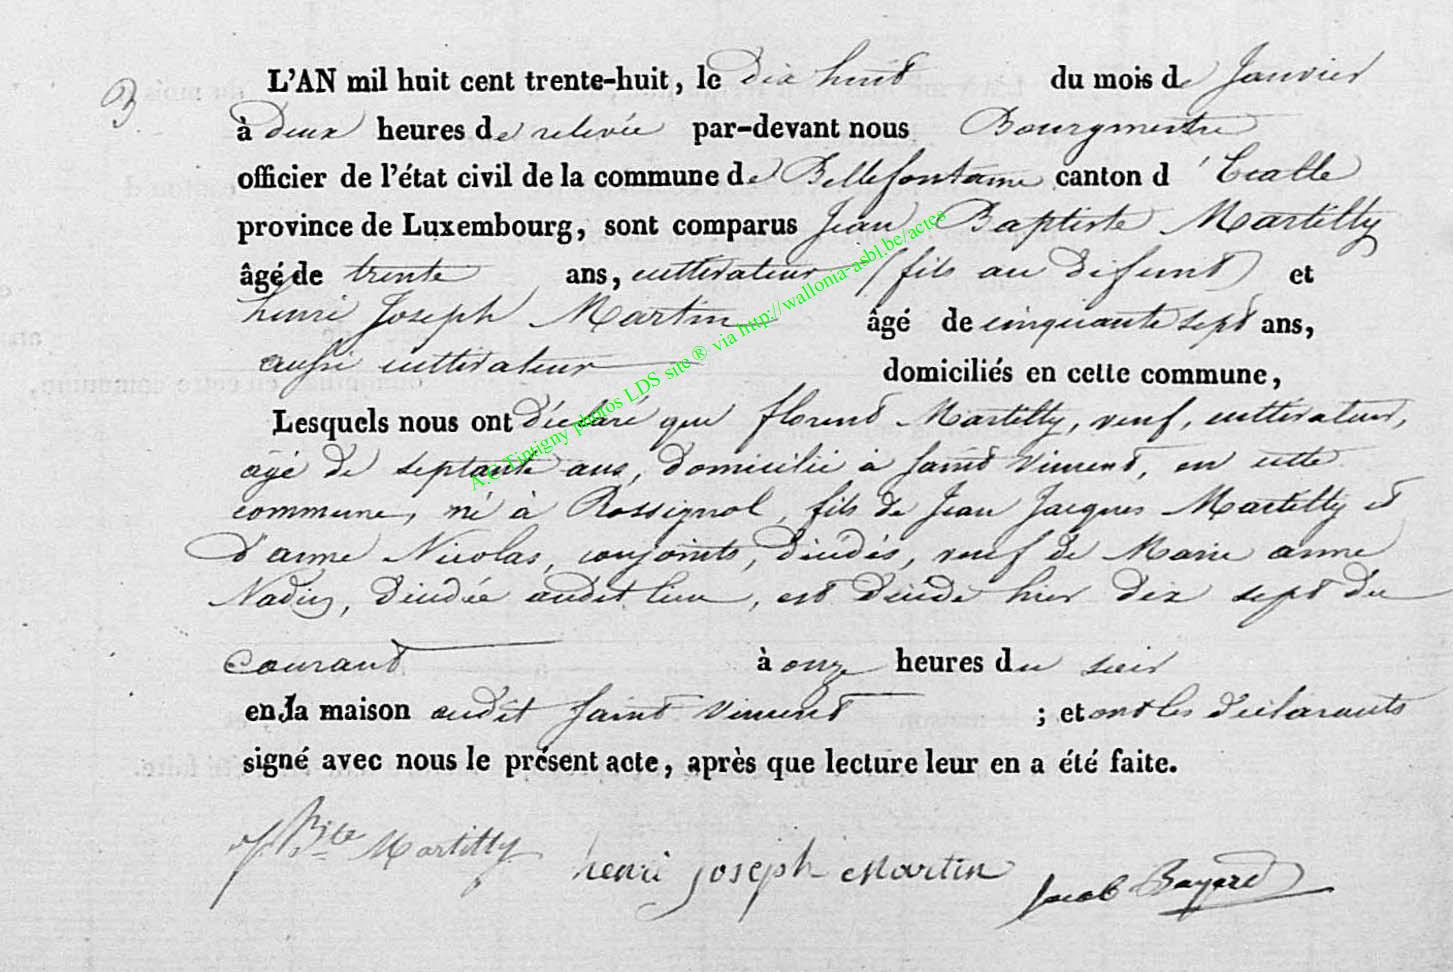 3
L'AN mil huit cent trente-huit, le dix huit du mois de Janvier
à deux heures de relevée par-devant nous Bourgmestre
officier de l'état civil de la commune de Bellefontaine canton d'Etalle
province de Luxembourg, sont comparus Jean Baptiste Martilly
âgé de trente ans, cultivateur (fils au défunt) et
henri Joseph Martin âgé de cinquante sept ans,
aussi cultivateur domiciliés en cette commune,
Lesquels nous ont déclaré que florent Martilly, veuf, cultivateur,
agé de septante ans, domicilié à Saint Vincent, en cette
commune, né à Rossignol, fils de Jean Jacques Martilly et
d'anne Nicolas, conjoints, décédés, veuf de Marie anne
Nadin, décédée audit lieu, est décédé hier dix sept du
courant à onze heures du soir
en la maison audit Saint Vincent ; et ont les déclarants
signé avec nous le présent acte, après que lecture leur en a été faite.
J Bte Martilly henri joseph Martin Jacob Bayard
A.C Tintigny photos LDS site ® via http://wallonia-asbl.be/actes